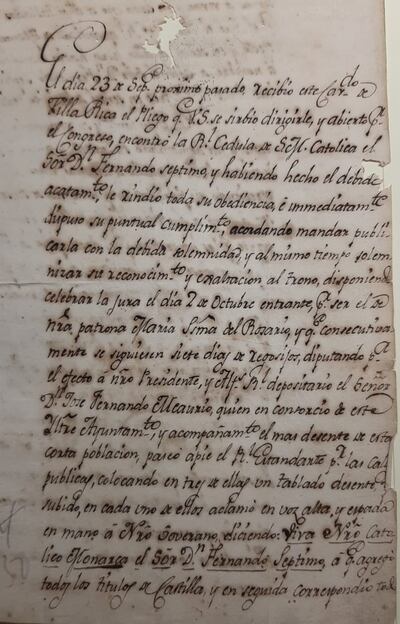 El dia 23 de Sepe. proximo pasado, recibio este Cavdo. de
Villa Rica el Pliego q.e V.S. se sirbio dirigirle, y abierto p.r
el Congreso, encontró la R.l Cedula de S.M. Catolica el
Sor D.n Fernando septimo, y habiendo hecho el debido
acatam.to, le rindio toda su obediencia, é immediatam.te
dispuso su puntual cumplim.to, acordando mandar publi
carla con la debida solemnidad, y al mismo tiempo solem
nizar su reconocim.to y exaltacion al trono, disponiendo
celebrar la jura el dia 2 de Octubre entrante, p.r ser el de
ntra. patrona Maria Sma. del Rosario, y q.e consecutiva
mente se siguiesen siete dias de regosijos, diputando p.a
el efecto á nro Presidente, y Alfs. R.l depositario el Señor
D.n Jose Fernando Meaurio, quien en consorcio de este
Iltre Ayuntam.to, y acompañam.to el mas desente de esta
corta poblacion, paseó apie el R.l Estandarte p.r las Cal
publicas, colocando en tres de ellas un tablado desente
subido, en cada uno de ellos aclamó en voz alta, y espada
en mano á Nro Soverano, diciendo: Viva Nro Cato
lico Monarca el Sor D.n Fernando Septimo, á q.e agregó
todos los titulos de Castilla, y en seguida correspondio tod